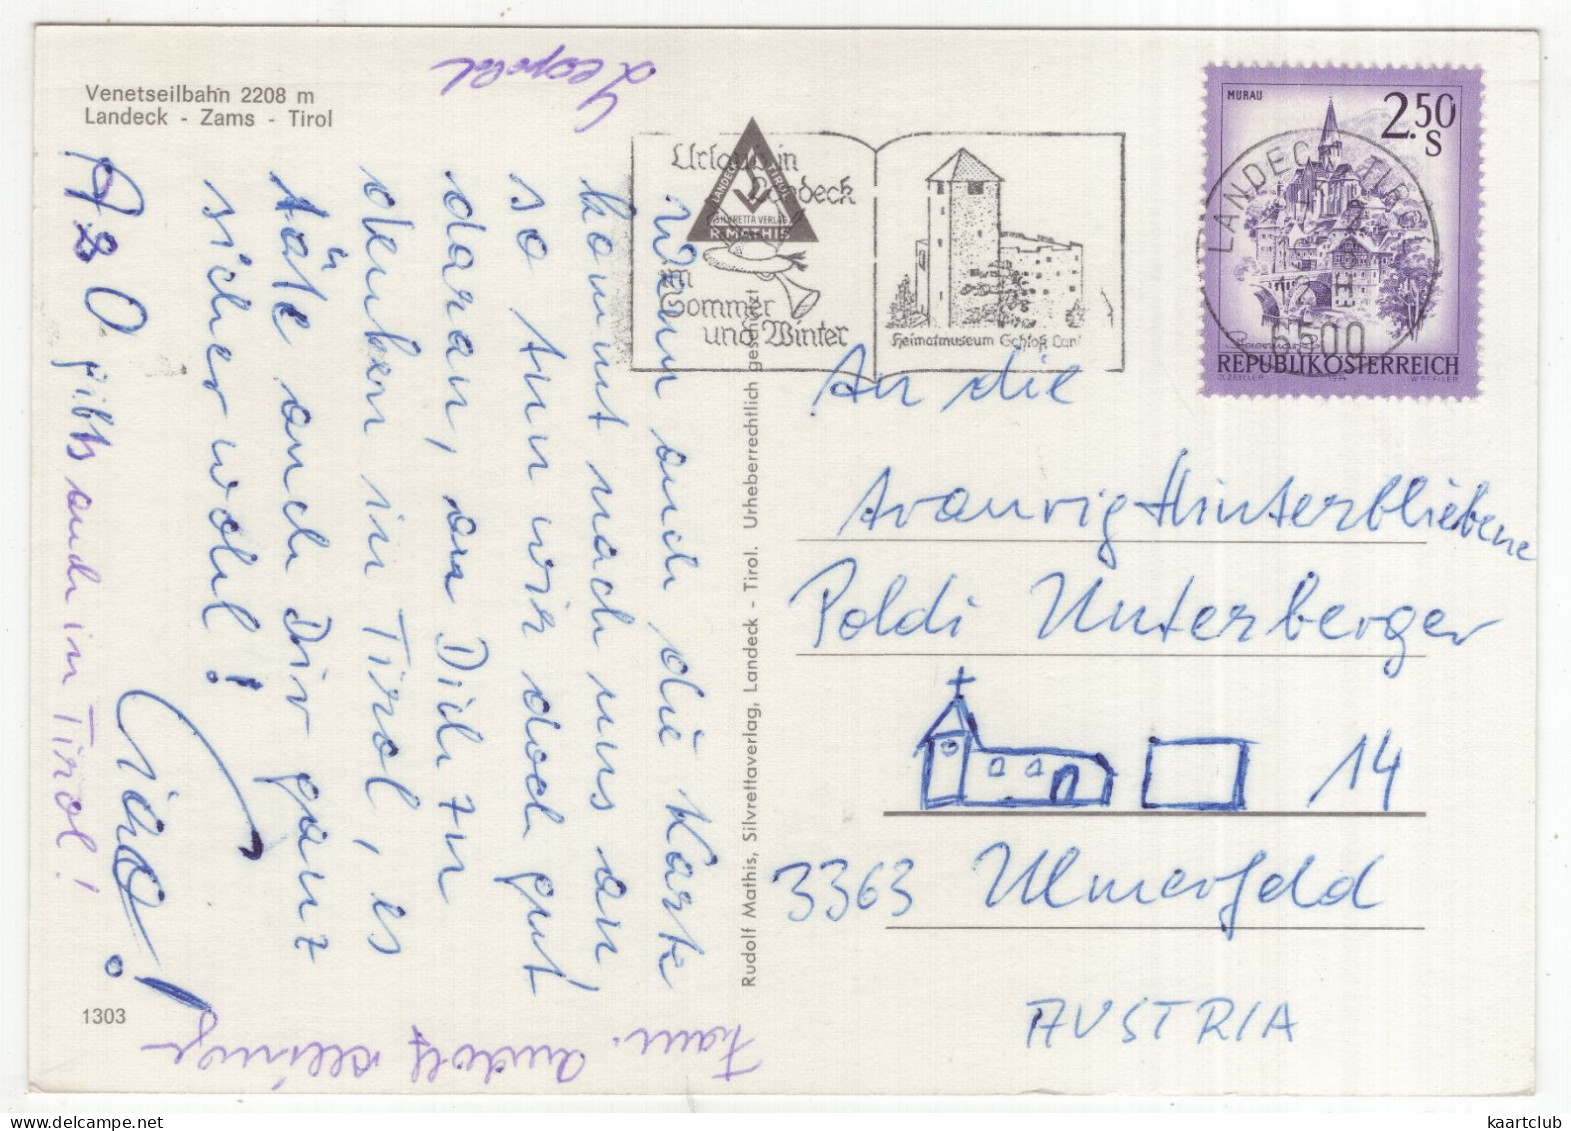 Venetseilbahn 2208 m
Landeck - Zams - Tirol
Leopold
Wenn auch die Karte
kommt nach uns an,
so tun wir doch gut
daran, an Dich zu
denken in Tirol, es
täte auch Dir ganz
sicher wohl!
A 3 O gibts auch in Tirol!
Ciao!
Fam. Rudolf
1303
Rudolf Mathis, Silvrettaverlag, Landeck - Tirol. Urheberrechtlich geschützt
Urlaub in
Landeck
im
Sommer
und Winter
Heimatmuseum Schloß
LANDECK TIROL
SILVRETTA VERLAG
R. MATHIS
MURAU
2.50
S
LANDECK, TIROL
6500
REPUBLIK ÖSTERREICH
O. ZEILLER
W. PFEILER
An die
traurig Hinterbliebene
Poldi Unterberger
14
3363 Ulmerfeld
AUSTRIA
kaartclub